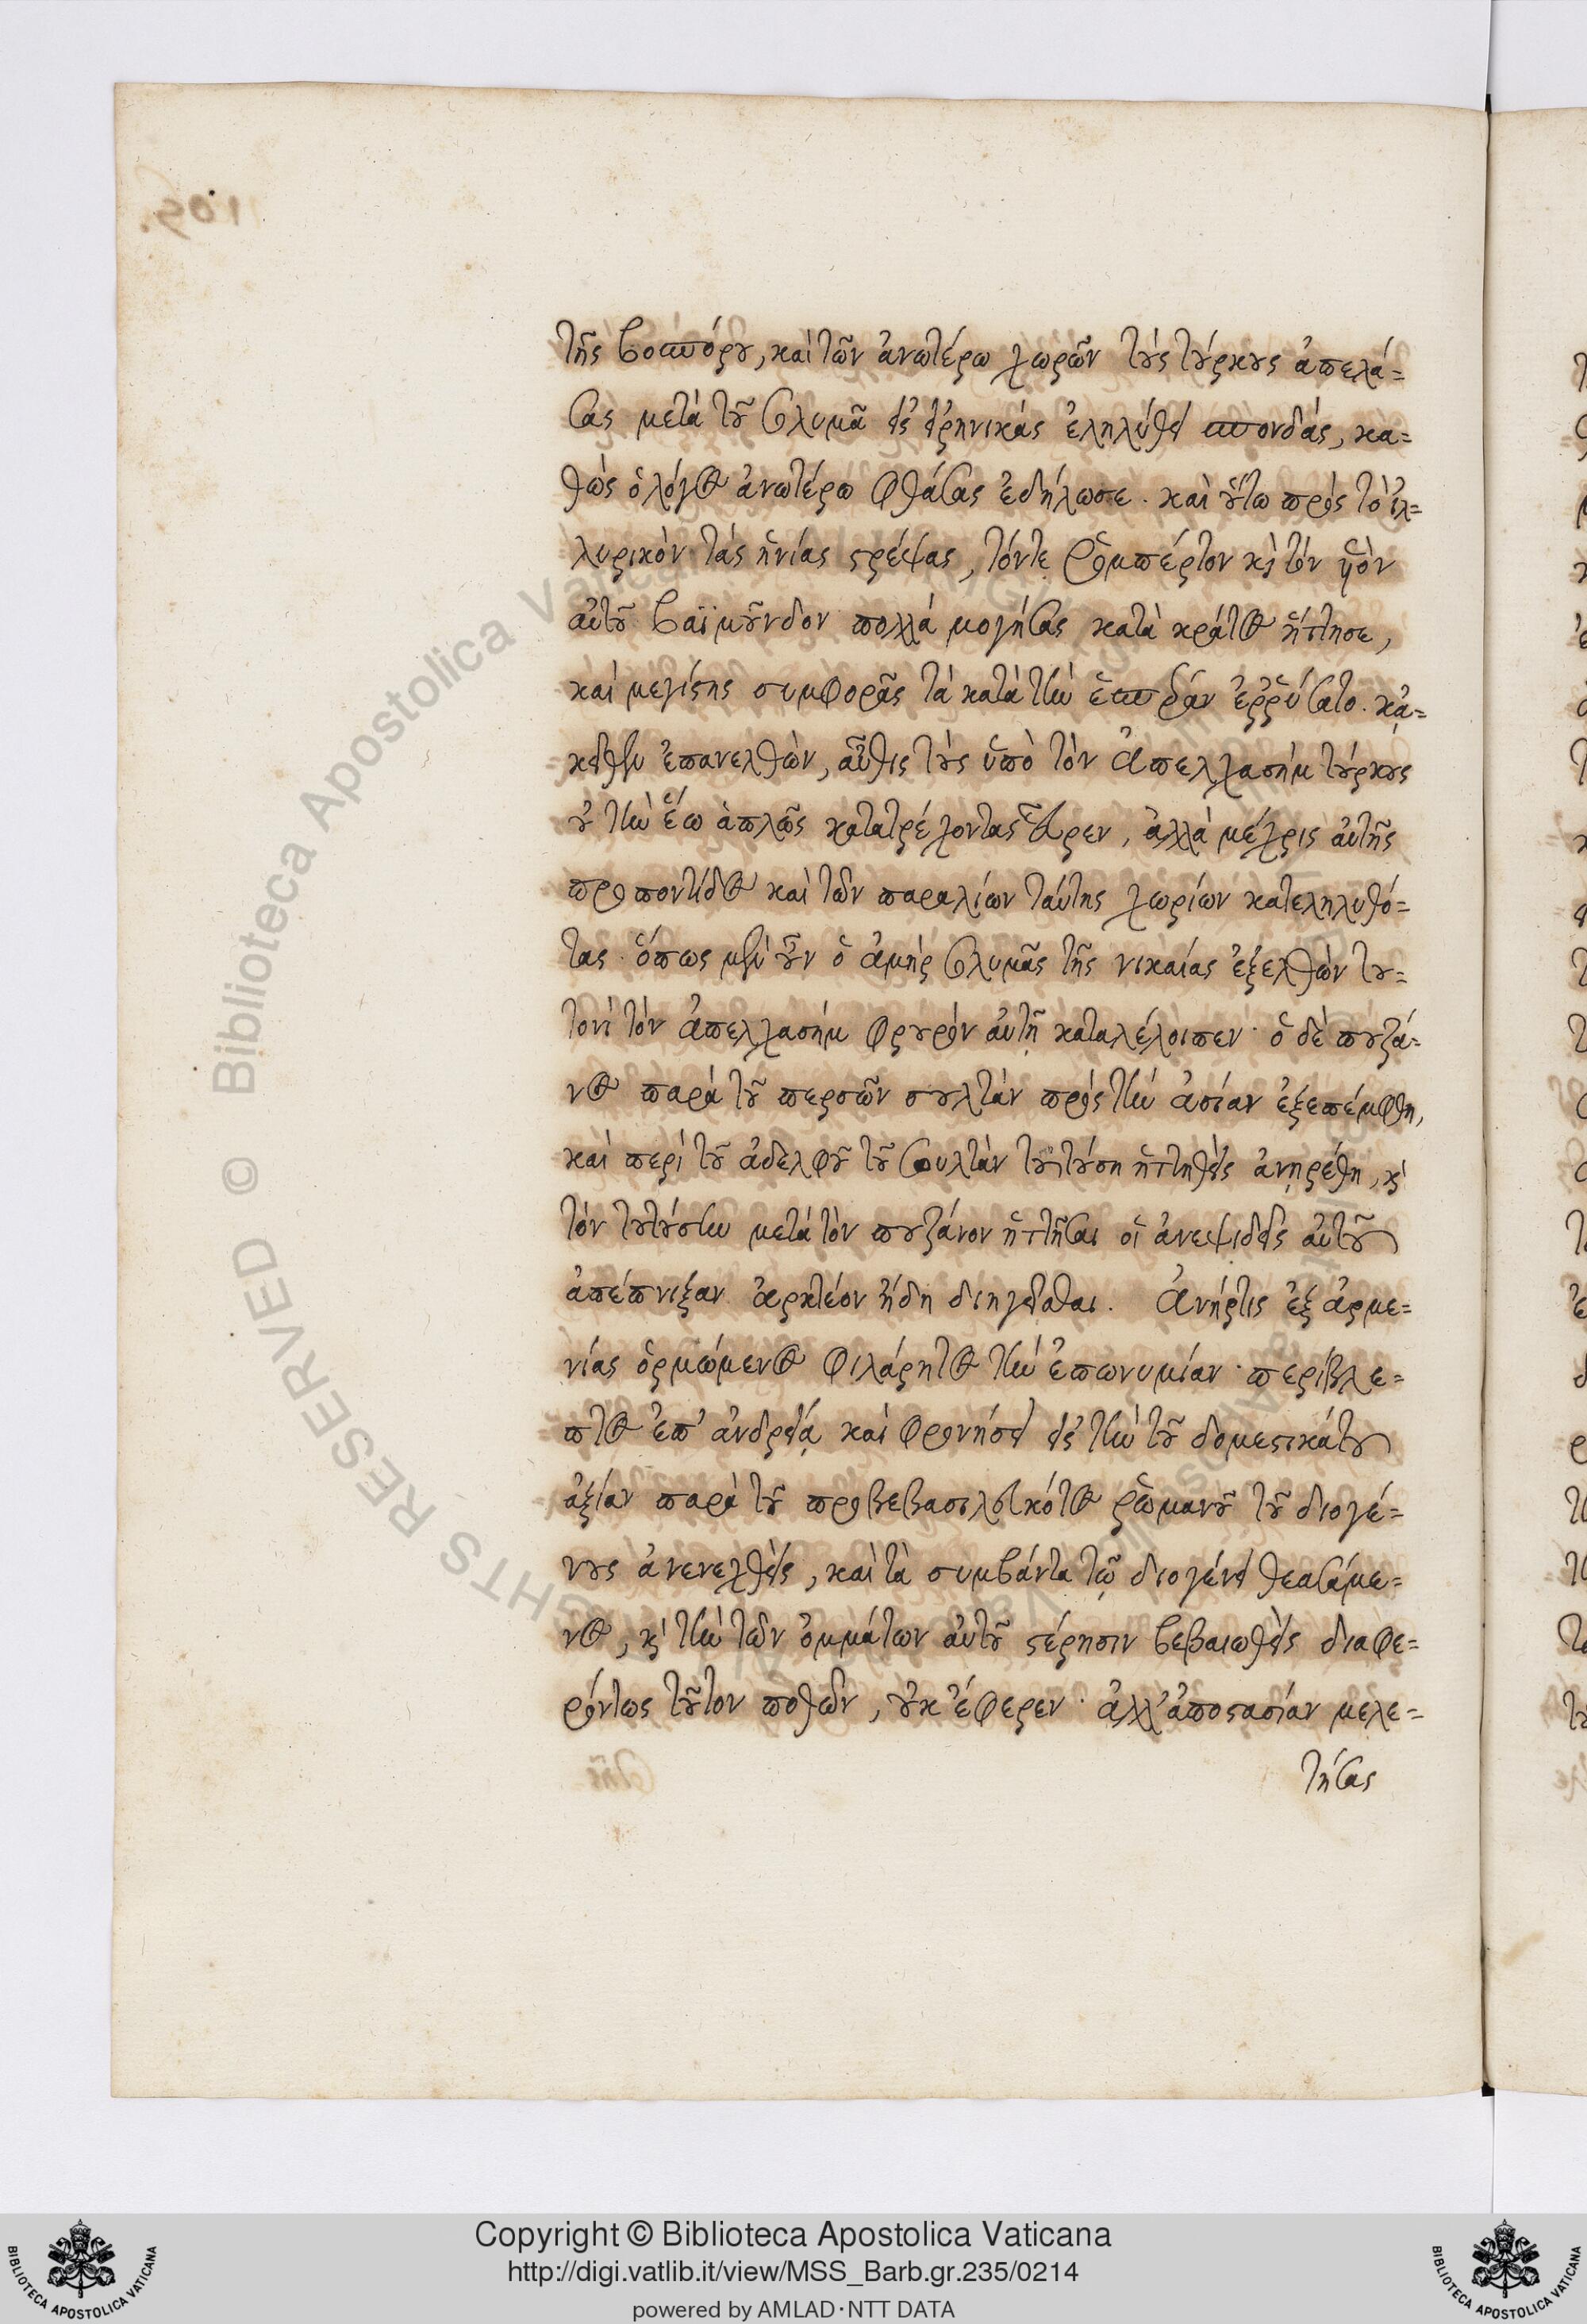 τῆς βοσπόρου, καὶ τῶν ἀνωτέρω χωρῶν τοὺς τούρκους ἀπελά=
σας μετὰ τοῦ σολυμᾶ εἰς εἰρηνικὰς ἐληλύθει σπονδάς, κα=
θὼς ὁ λόγος ἀνωτέρω φθάσας ἐδήλωσε. καὶ οὕτω πρὸς τὸ ἰλ=
λυρικὸν τὰς ἡνίας στρέψας, τόντε ῥομπέρτον καὶ τὸν υἱὸν
αὐτοῦ βαϊμοῦνδον πολλὰ μογήσας κατὰ κράτος ἥττησε,
καὶ μεγίστης συμφορᾶς τὰ κατὰ τὴν ἑσπέραν ἐρρύσατο. κἀ=
κεῖθεν ἐπανελθὼν, αὖθις τοὺς ὑπὸ τὸν Ἀπελχασὴμ τούρκους
οὐ τὴν ἕω ἁπλῶς κατατρέχοντας εὗρεν, ἀλλὰ μέχρις αὐτῆς
προποντίδος καὶ τῶν παραλίων ταύτης χωρίων κατεληλυθό=
τας. ὅπως μὲν οὖν ὁ ἀμὴρ σολυμᾶς τῆς νικαίας ἐξελθὼν του=
τονὶ τὸν ἀπελχασὴμ φρουρὸν αὐτῇ καταλέλοιπεν. ὁ δὲ πουζά=
νος παρὰ τοῦ περσῶν σουλτὰν πρὸς τὴν ἀσίαν ἐξεπέμφθη,
καὶ περὶ τοῦ ἀδελφοῦ τοῦ σουλτὰν τουτούση ἡττηθεὶς ἀνῃρέθη, καὶ
τὸν τουτούσην μετὰ τὸν πουζάνον ἡττῆσαι οἱ ἀνεψιδεῖς αὐτοῦ
ἀπέπνιξαν ἀρκτέον ἤδη διηγεῖσθαι. Ἀνήρτις ἐξ ἀρμε=
νίας ὁρμώμενος Φιλάρητος τὴν ἐπωνυμίαν. περίβλε=
πτος ἐπ' ἀνδρείᾳ καὶ φρονήσει εἰς τὴν τοῦ δομεστικάτου
ἀξίαν παρὰ τοῦ προβεβασιλευκότος ῥωμανοῦ τοῦ διογέ=
νους ἀνενεχθεὶς, καὶ τὰ συμβάντα τῷ διογένει θεασάμε=
νος, καὶ τὴν τῶν ὀμμάτων αὐτοῦ στέρησιν βεβαιωθεὶς διαφε=
ρόντως τοῦτον ποθῶν, οὐκ ἔφερεν. ἀλλ' ἀποστασίαν μελε=
τήσας
Copyright © Biblioteca Apostolica Vaticana
http://digi.vatlib.it/view/MSS_Barb.gr.235/0214
powered by AMLAD · NTT DATA